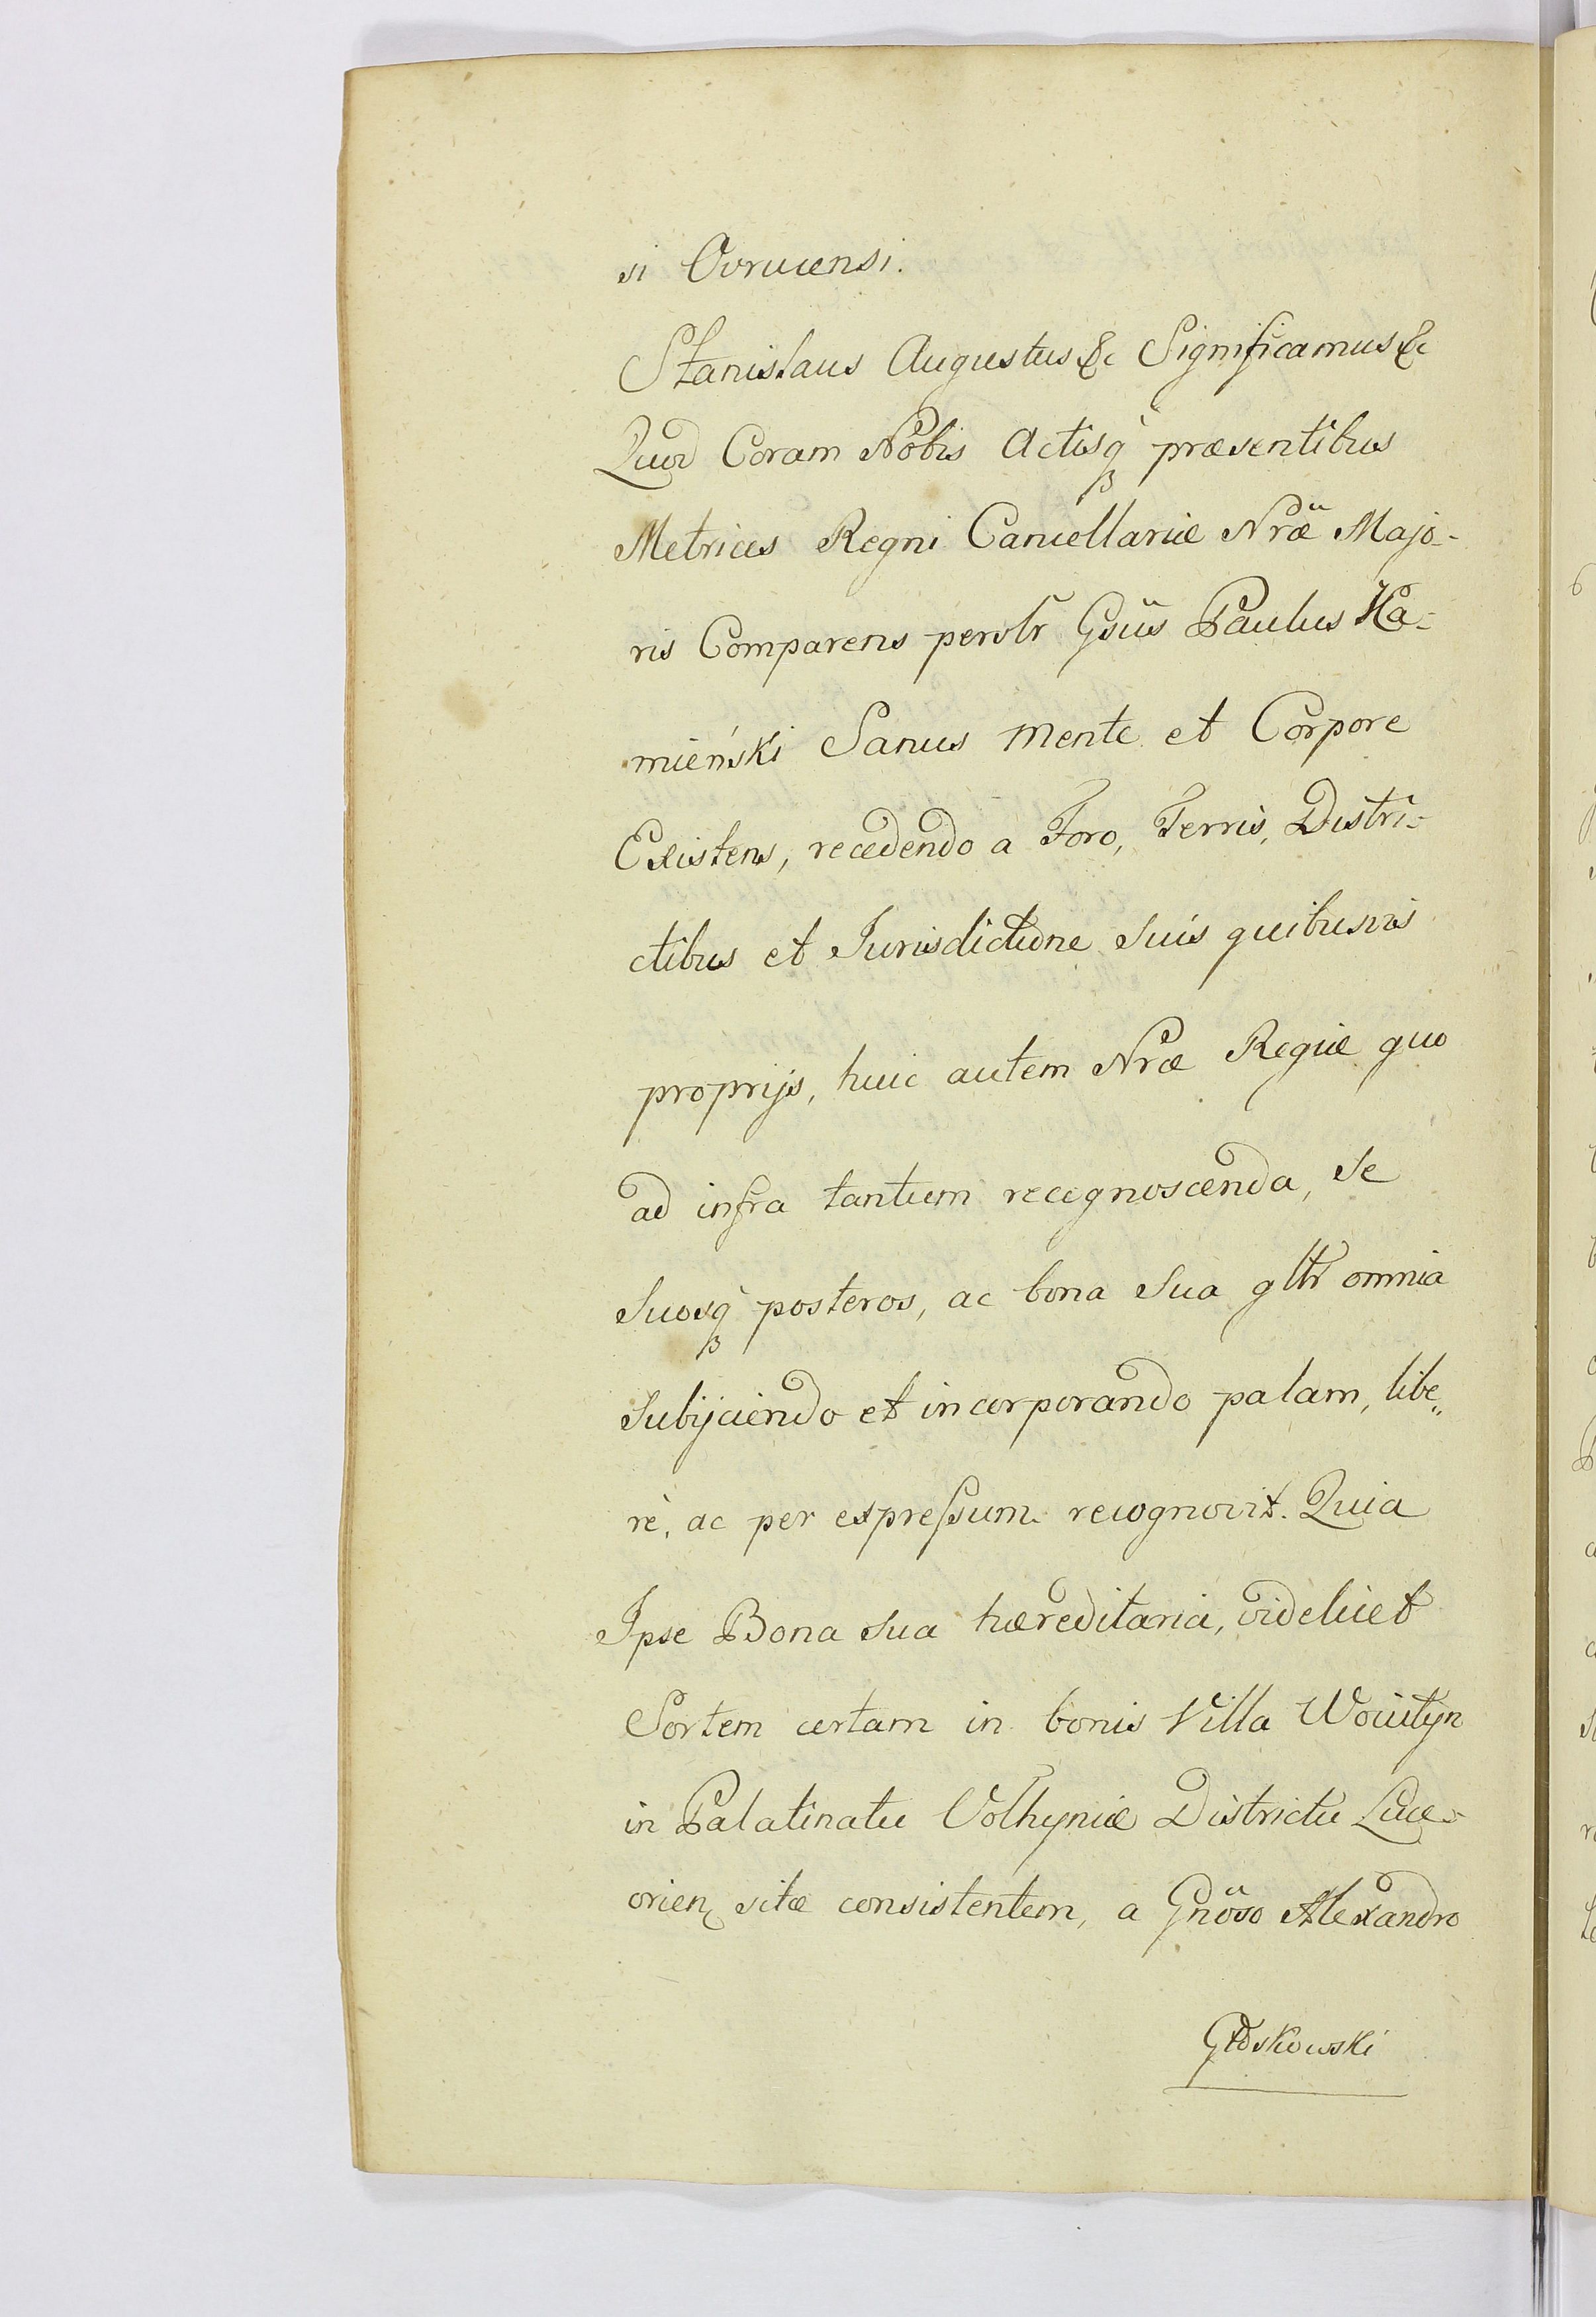 si Ovrucensi.
Stanislaus Augustus &c Significamus &c
Quod Coram Nobis Actisq̃ præsentibus
Metrices Regni Cancellariæ Nræ Majo-
ris Comparens persolr Gsus Paulus Ka-
mieński Sanus mente et Corpore
Existens, recedendo a Foro, Terris, Distri-
ctibus et Jurisdictione suis quibusvis
proprijs, huic autem Nræ Regiæ quo
ad infra tantum recognoscenda, se
suosq̃ posteros, ac bona sua gltr omnia
subijciendo et incorporando palam, libe„
rè, ac per expressum recognovit. Quia
Ipse Bona sua hæreditaria, videlicet
Sortem certam in bonis Villa Woiutyn
in Palatinatu Volhyniæ Districtu Luce-
orien sitæ consistentem, a Gnoso Alexandro
Głoskowski